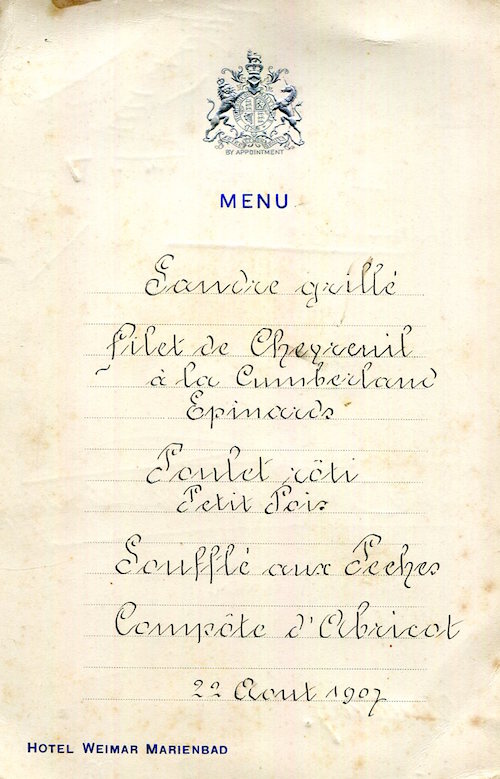 BY APPOINTMENT
MENU
Sandre grillé
Filet de Chevreuil
à la Cumberland
Epinards
Poulet rôti
Petit Pois
Soufflé aux Peches
Compôte d'Abricot
22 Aout 1907
HOTEL WEIMAR MARIENBAD